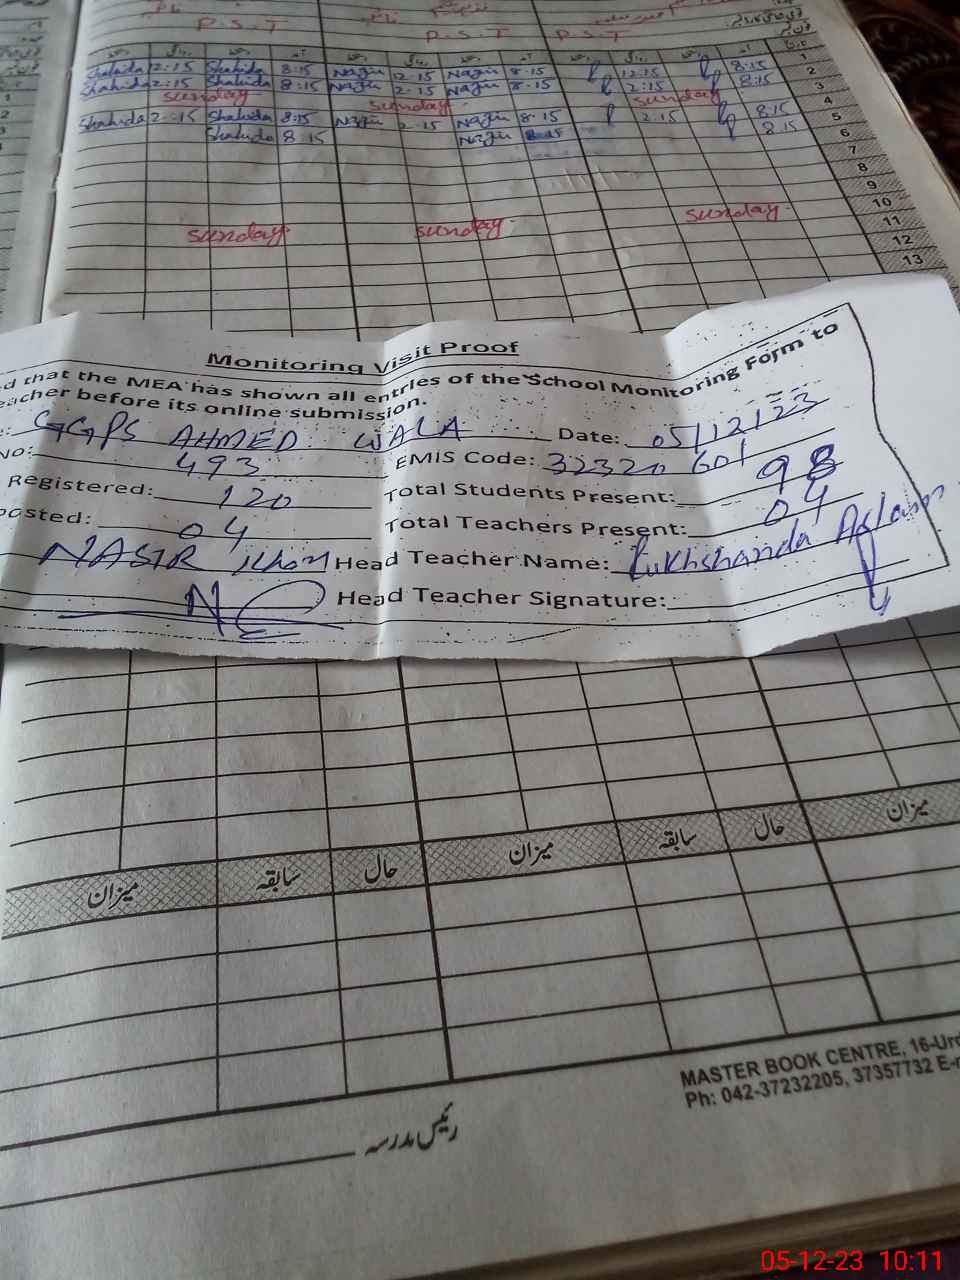 P.S.T P.S.T P.S.T
Shahida 12:15 Shahida 8:15 Nazu 12:15 Nazu 8:15 12:15 8:15 1
Shahida 2:15 Shahida 8:15 Nazu 2:15 Nazu 8:15 2:15 8:15 2
sunday sunday sunday 3
Shahida 2:15 Shahida 8:15 Nazu 2:15 Nazu 8:15 2:15 8:15 4
Shahida 8:15 Nazu 8:15 8:15 5
6
7
8
9
sunday sunday sunday 10
11
12
13
Monitoring Visit Proof
d that the MEA has shown all entries of the School Monitoring Form to
eacher before its online submission.
GGPS AHMED WALA Date: 05/12/23
No: 493 EMIS Code: 32320601
Registered: 120 Total Students Present: 98
posted: 04 Total Teachers Present: 04
NASIR Khan Head Teacher Name: Rukhshanda Aslam
Head Teacher Signature:
میزان سابقہ حال میزان سابقہ حال میزان
MASTER BOOK CENTRE, 16-Urd
Ph: 042-37232205, 37357732 E-
رئیس مدرسہ
05-12-23 10:11